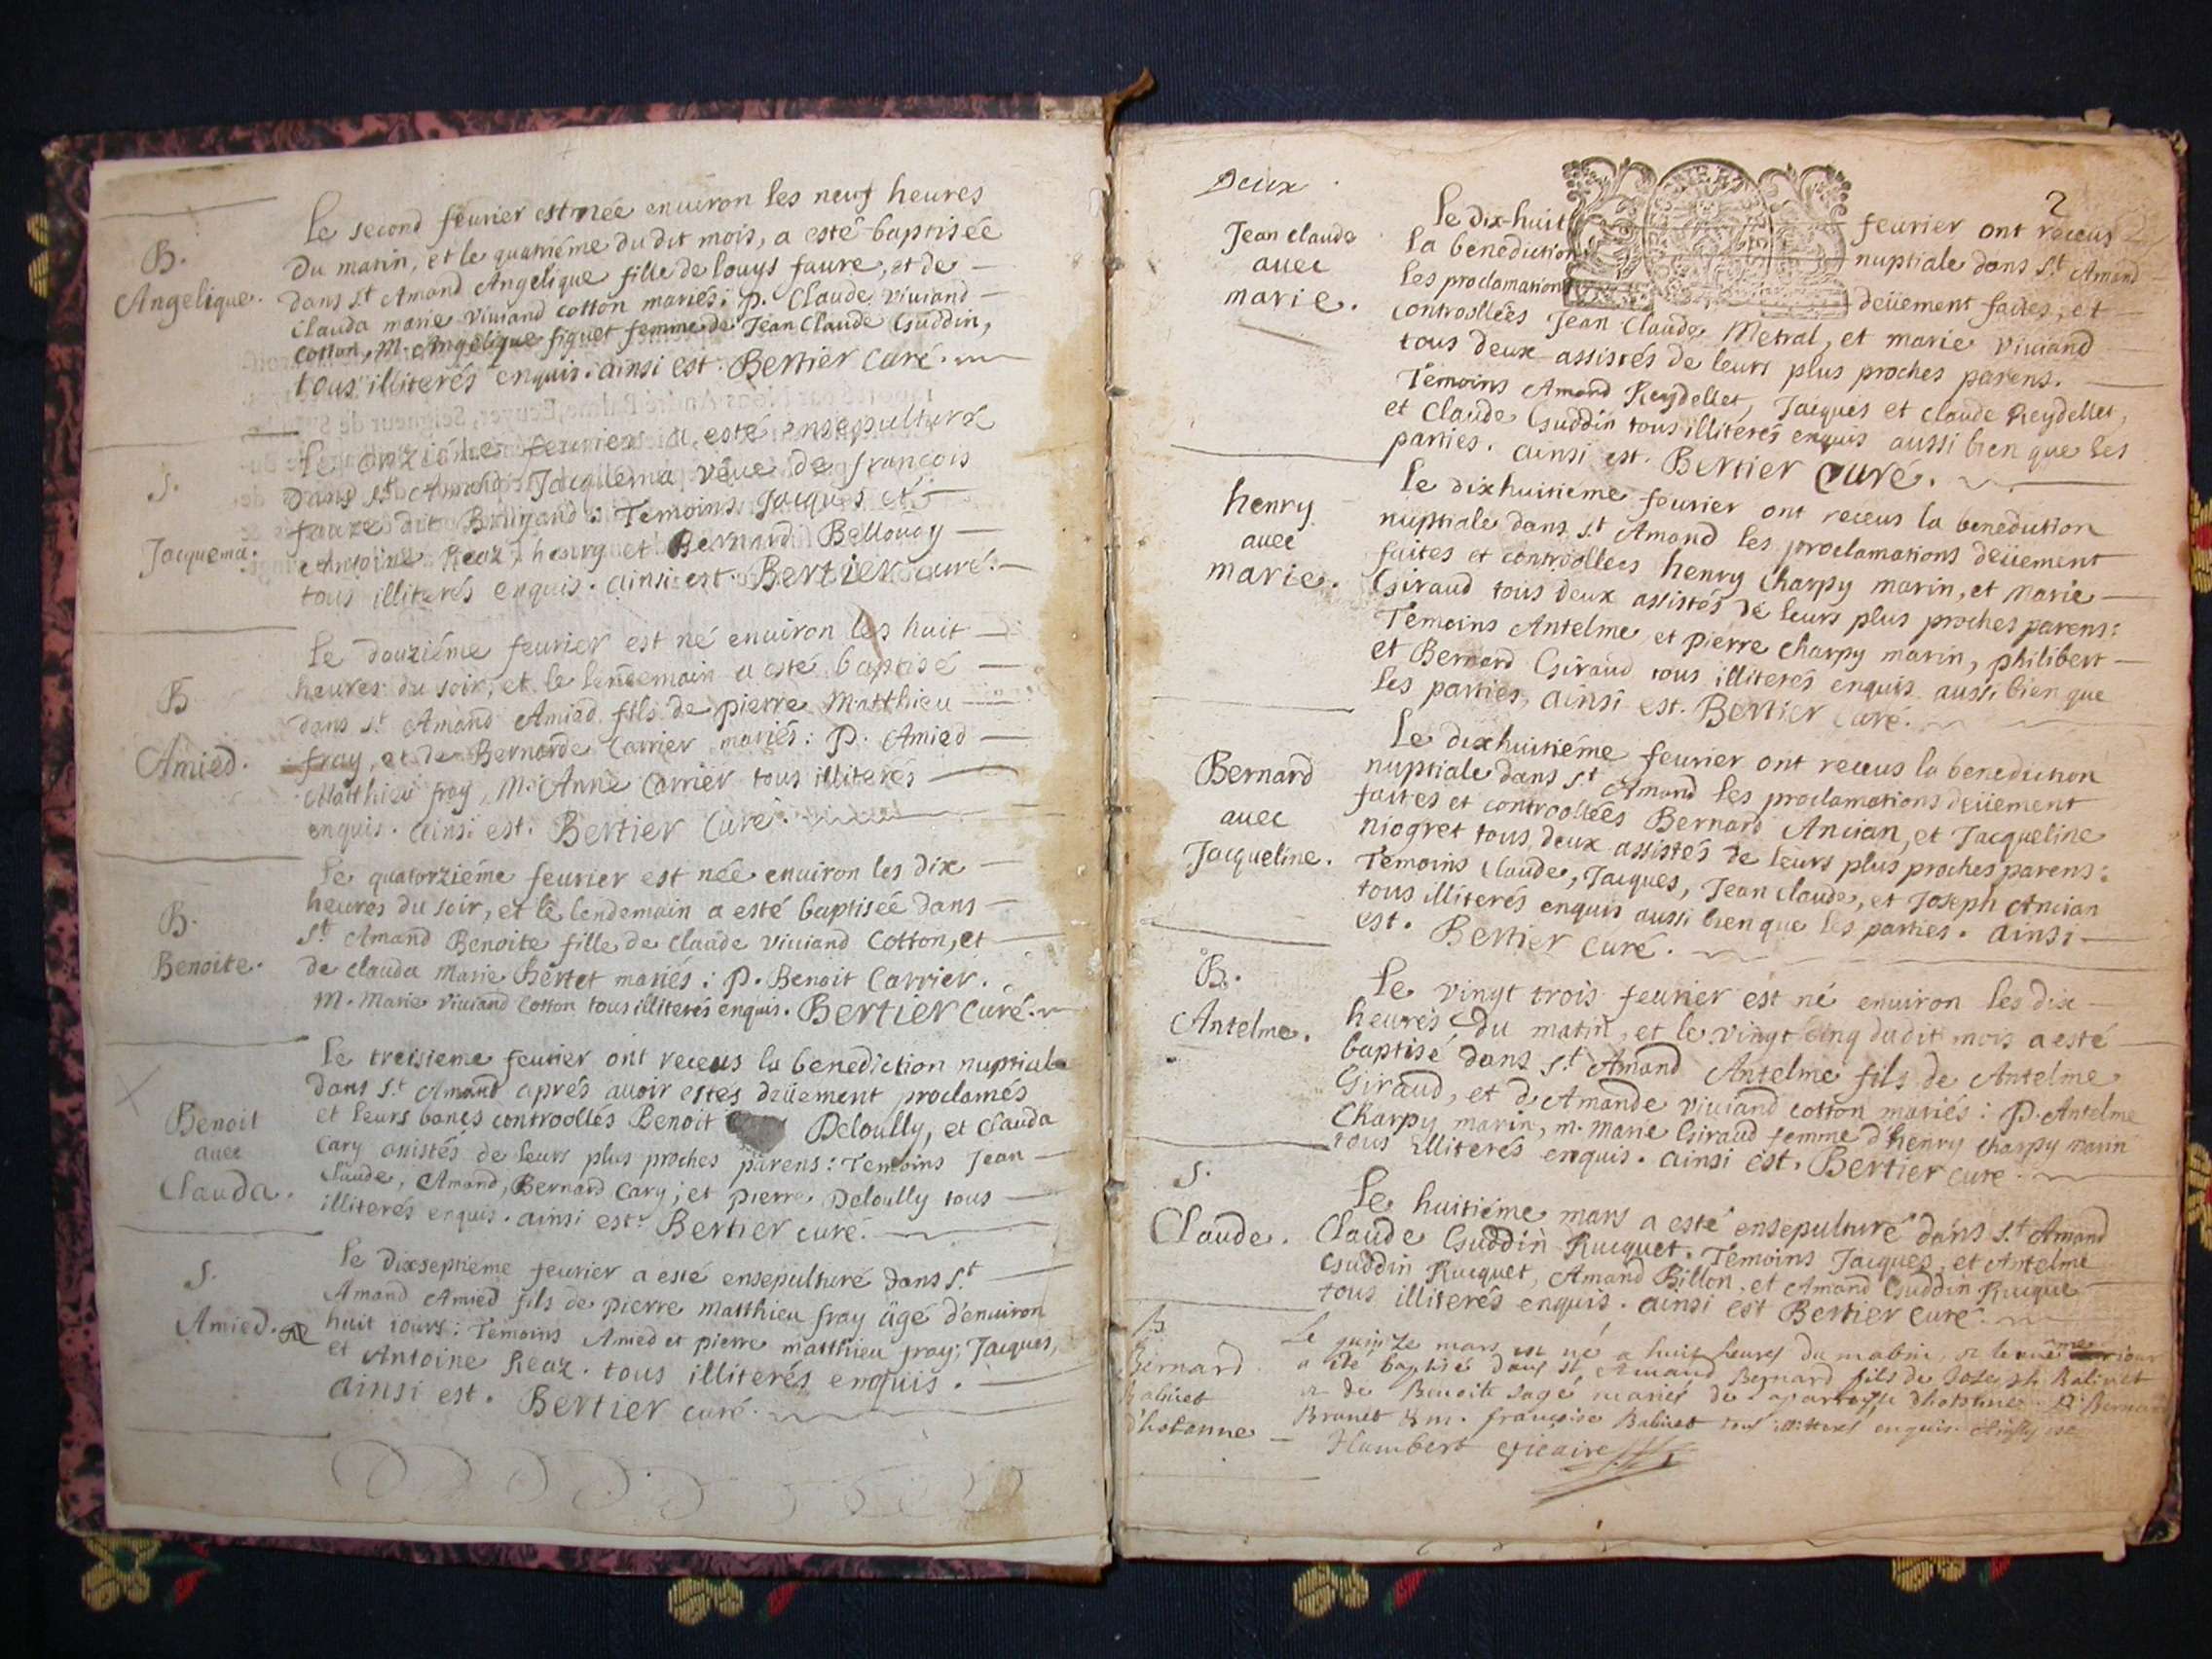 B.
Angelique.
Le second feurier est née enuiron les neuf heures
du matin, et le quatriéme dudit mois, a esté baptisée
dans St Amand Angelique fille de louys faure, et de
Clauda marie viuiand cotton mariés: P. Claude viuiand
cotton, M. Angelique figuet femme de Jean Claude Guddin,
tous illiterés enquis. ainsi est. Bertier curé.
S.
Jacquema.
Le onziéme feurier a esté ensepulturé
dans St Amand Jacquema véue de françois
faure dit Bruyand: Temoins Jacques et
Antoine Reaz, henry et Bernard Bellouoy
tous illiterés enquis. ainsi est. Bertier curé.
B
Amied.
Le douziéme feurier est né enuiron les huit
heures du soir, et le lendemain a esté baptisé
dans St Amand Amied fils de pierre Matthieu
fray, et de Bernarde Carrier mariés: P. Amied
Matthieu fray, M. Anne Carrier tous illiterés
enquis. ainsi est. Bertier Curé.
B.
Benoite.
Le quatorziéme feurier est née enuiron les dix
heures du soir, et le lendemain a esté baptisée dans
St Amand Benoite fille de Claude viuiand Cotton, et
de Clauda Marie hertet mariés: P. Benoit Carrier.
M. Marie viuiand Cotton tous illiterés enquis. Bertier Curé.
Benoit
auec
Clauda.
Le treisieme feurier ont receus la benediction nuptiale
dans St Amand aprés auoir estés deüement proclamés
et leurs bancs controollés Benoit Deloully, et Clauda
Cary assistés de leurs plus proches parens: Temoins Jean
Claude, Amand, Bernard Cary; et pierre Deloully tous
illiterés enquis. ainsi est. Bertier curé.
S.
Amied.
Le dixseptiéme feurier a esté ensepulturé dans St
Amand Amied fils de pierre matthieu fray âgé d'enuiron
huit iours: Temoins Amied et pierre matthieu fray; Jacques,
et Antoine Reaz. tous illiterés enquis.
ainsi est. Bertier curé.
Deux
2
Jean claude
auec
marie.
Le dix-huit feurier ont receus
la benediction nuptiale dans St Amand
les proclamations deüement faites, et
controollées Jean Claude Metral, et marie viuiand
tous deux assistés de leurs plus proches parens.
Temoins Amand Reydellet, Jacques et claude Reydellet,
et Claude Guddin tous illiterés enquis aussi bien que les
parties. ainsi est. Bertier Curé.
henry
auec
marie.
Le dixhuitieme feurier ont receus la benediction
nuptiale dans St Amand les proclamations deüement
faites et controollees henry Charpy marin, et Marie
Giraud tous deux assistés de leurs plus proches parens:
Temoins Antelme et pierre charpy marin, philibert
et Bernard Giraud tous illiterés enquis aussi bien que
les parties, ainsi est. Bertier Curé.
Bernard
auec
Jacqueline.
Le dixhuitiéme feurier ont receus la benediction
nuptiale dans St Amand les proclamations deüement
faites et controollées Bernard Ancian, et Jacqueline
niogret tous deux assistés de leurs plus proches parens:
Temoins Claude, Jacques, Jean claude, et Joseph Ancian
tous illiterés enquis aussi bien que les parties. ainsi
est. Bertier curé.
B.
Antelme.
Le vingt trois feurier est né enuiron les dix
heures du matin, et le vingt cinq dudit mois a esté
baptisé dans St Amand Antelme fils de Antelme
Giraud, et d'Amande viuiand cotton mariés: P. Antelme
Charpy marin, m. Marie Giraud femme d'henry charpy marin
tous illiterés enquis. ainsi est. Bertier curé.
S.
Claude.
Le huitiéme mars a esté ensepulturé dans St Amand
Claude Guddin Rucquet. Temoins Jacques, et Antelme
Guddin Rucquet, Amand Billon, et Amand Guddin Rucque
tous illiterés enquis. ainsi est Bertier curé.
B
Bernard
Balivet
d'hotonne
Le quinze mars est né a huit heures du matin, et le meme iour
a été baptisé dans St Amand Bernard fils de Joseph Balivet
et de Benoite Sage, mariés de la parroisse dhotonne. P. Bernard
Brunet & m. françoise Balivet tous illitterés enquis. Ainsy est
Humbert vicaire